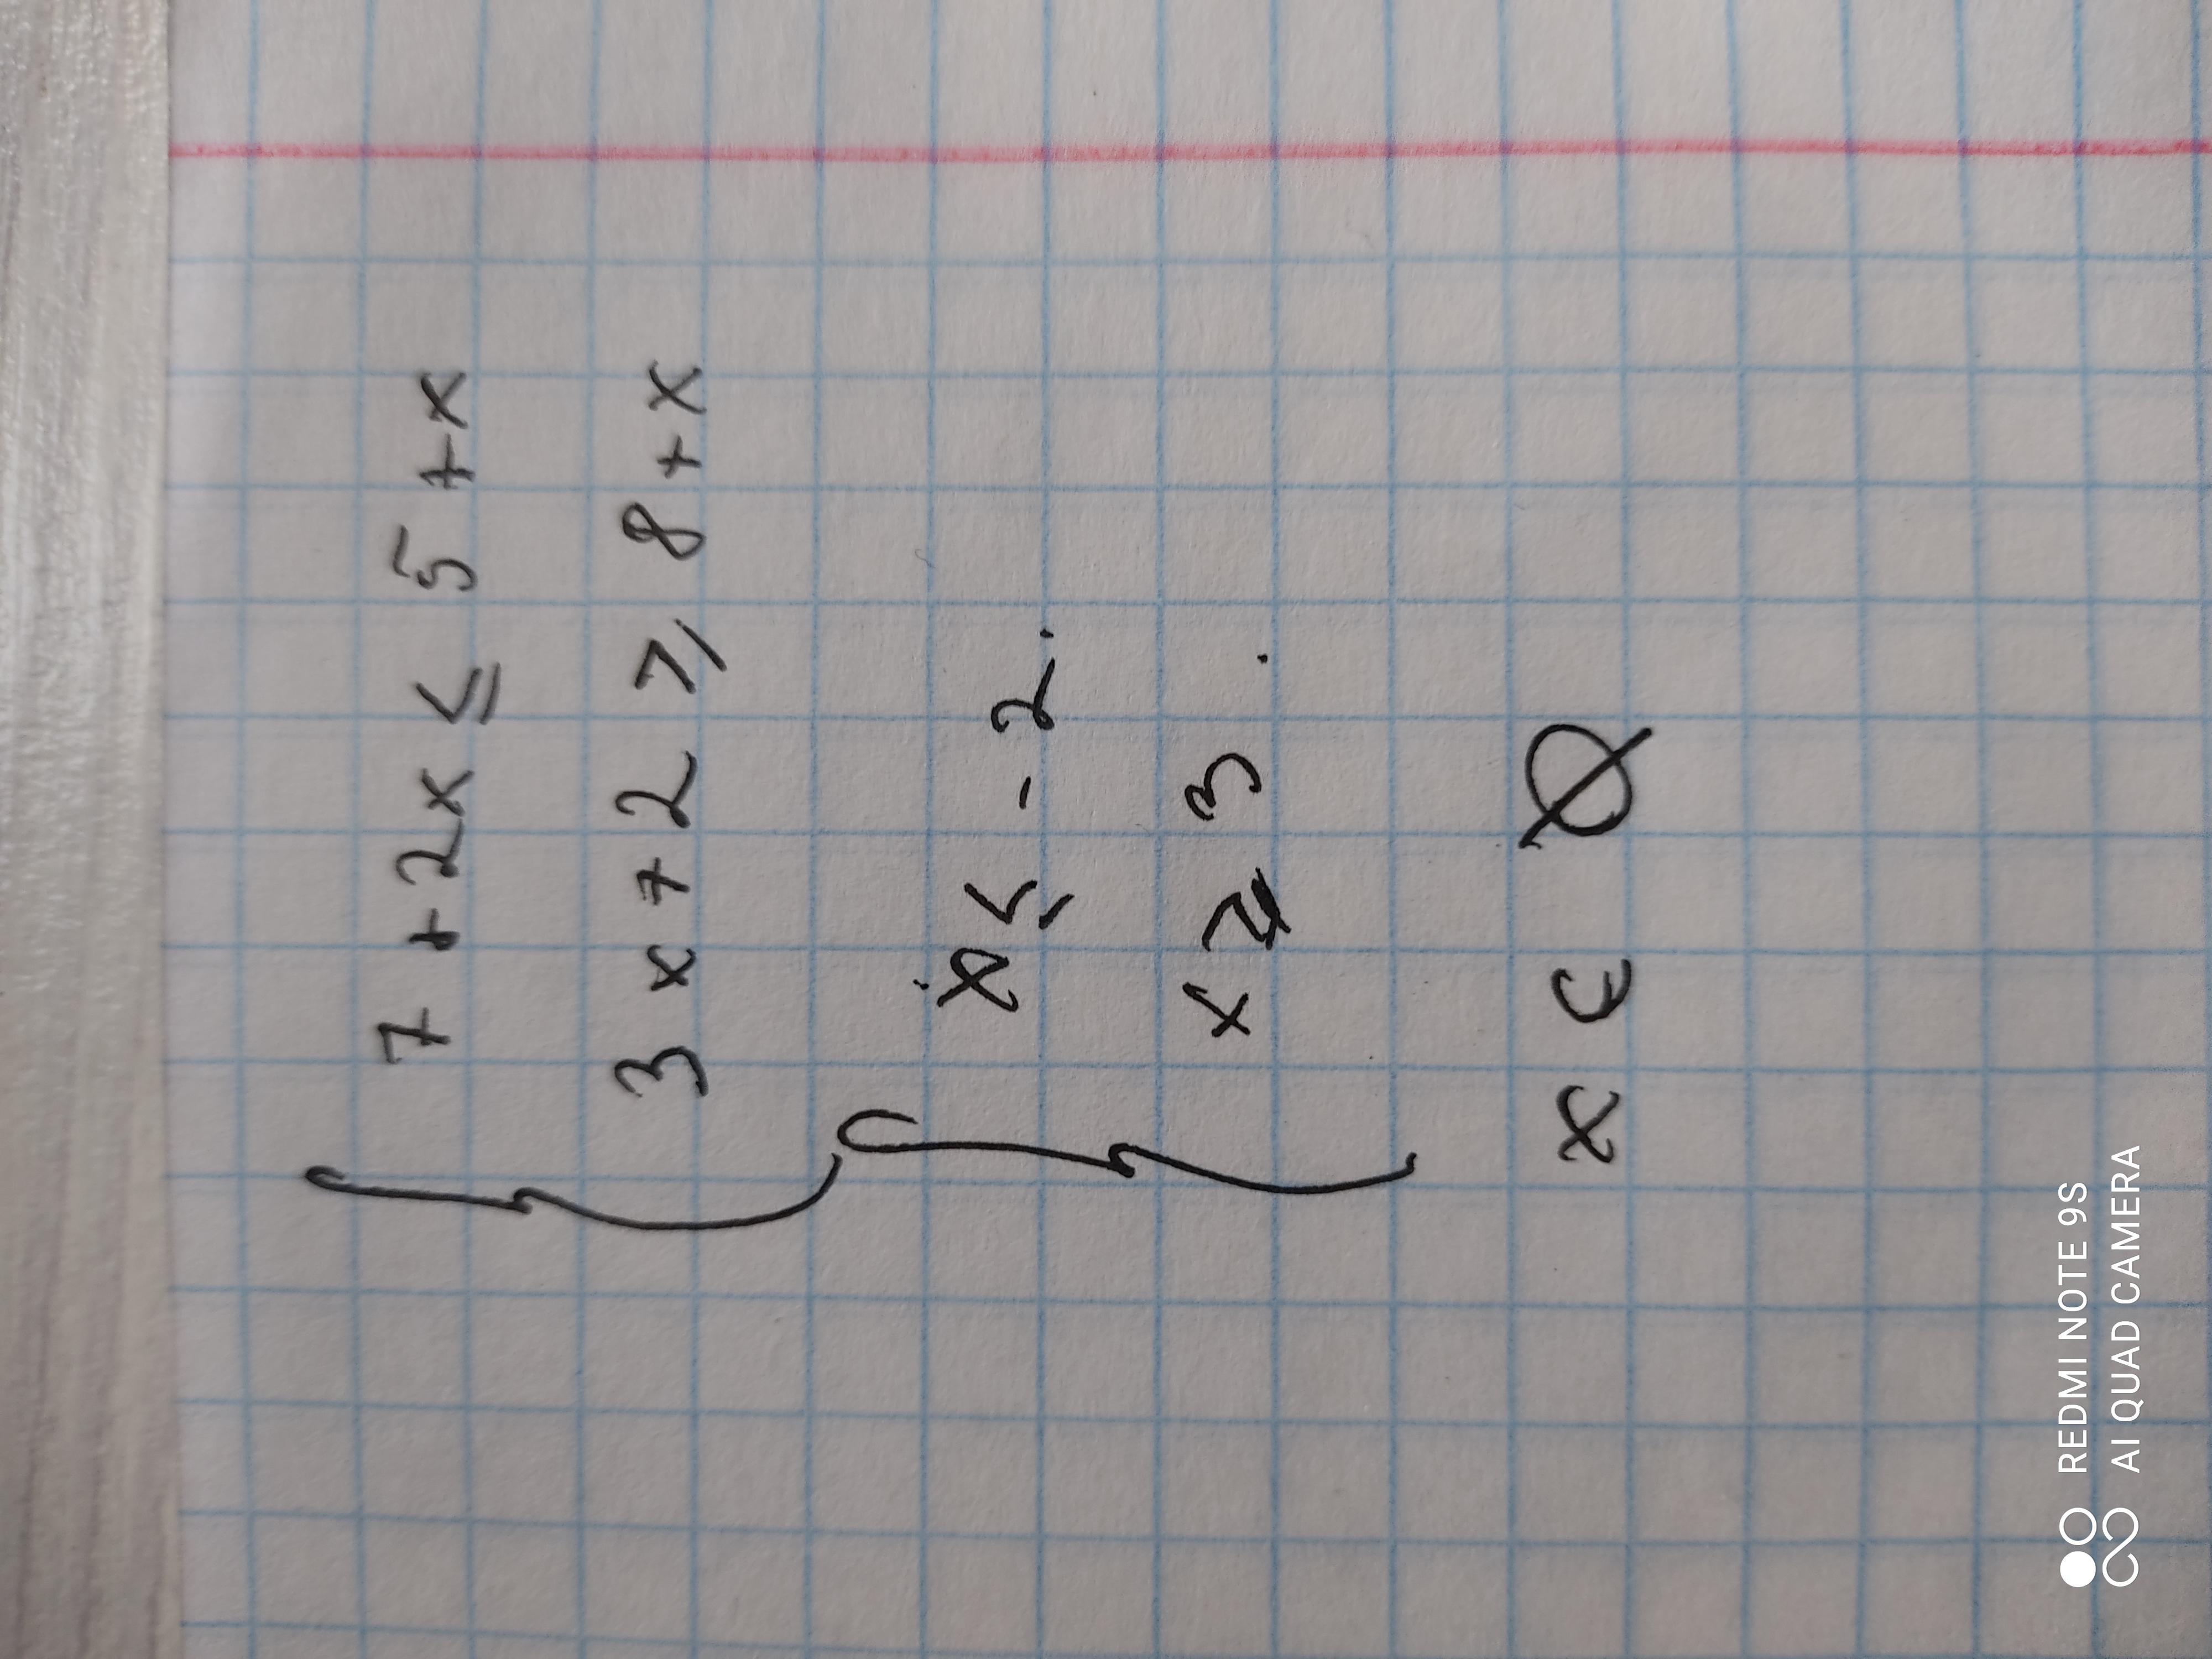 7 + 2x ≤ 5 + x
3x + 2 ⩾ 8 + x
x ≤ -2.
x ≥ 3.
x ∈ Ø
REDMI NOTE 9S
AI QUAD CAMERA